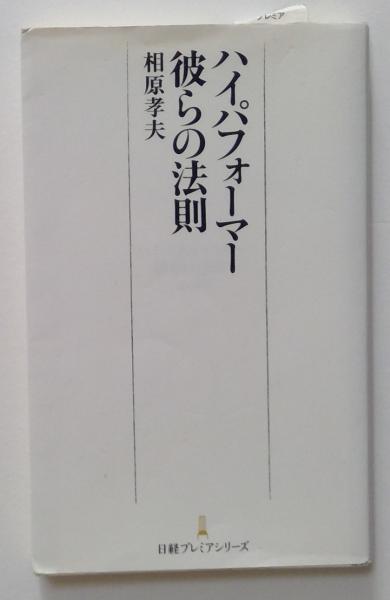 ハイパフォーマー
彼らの法則
相原孝夫
日経プレミアシリーズ